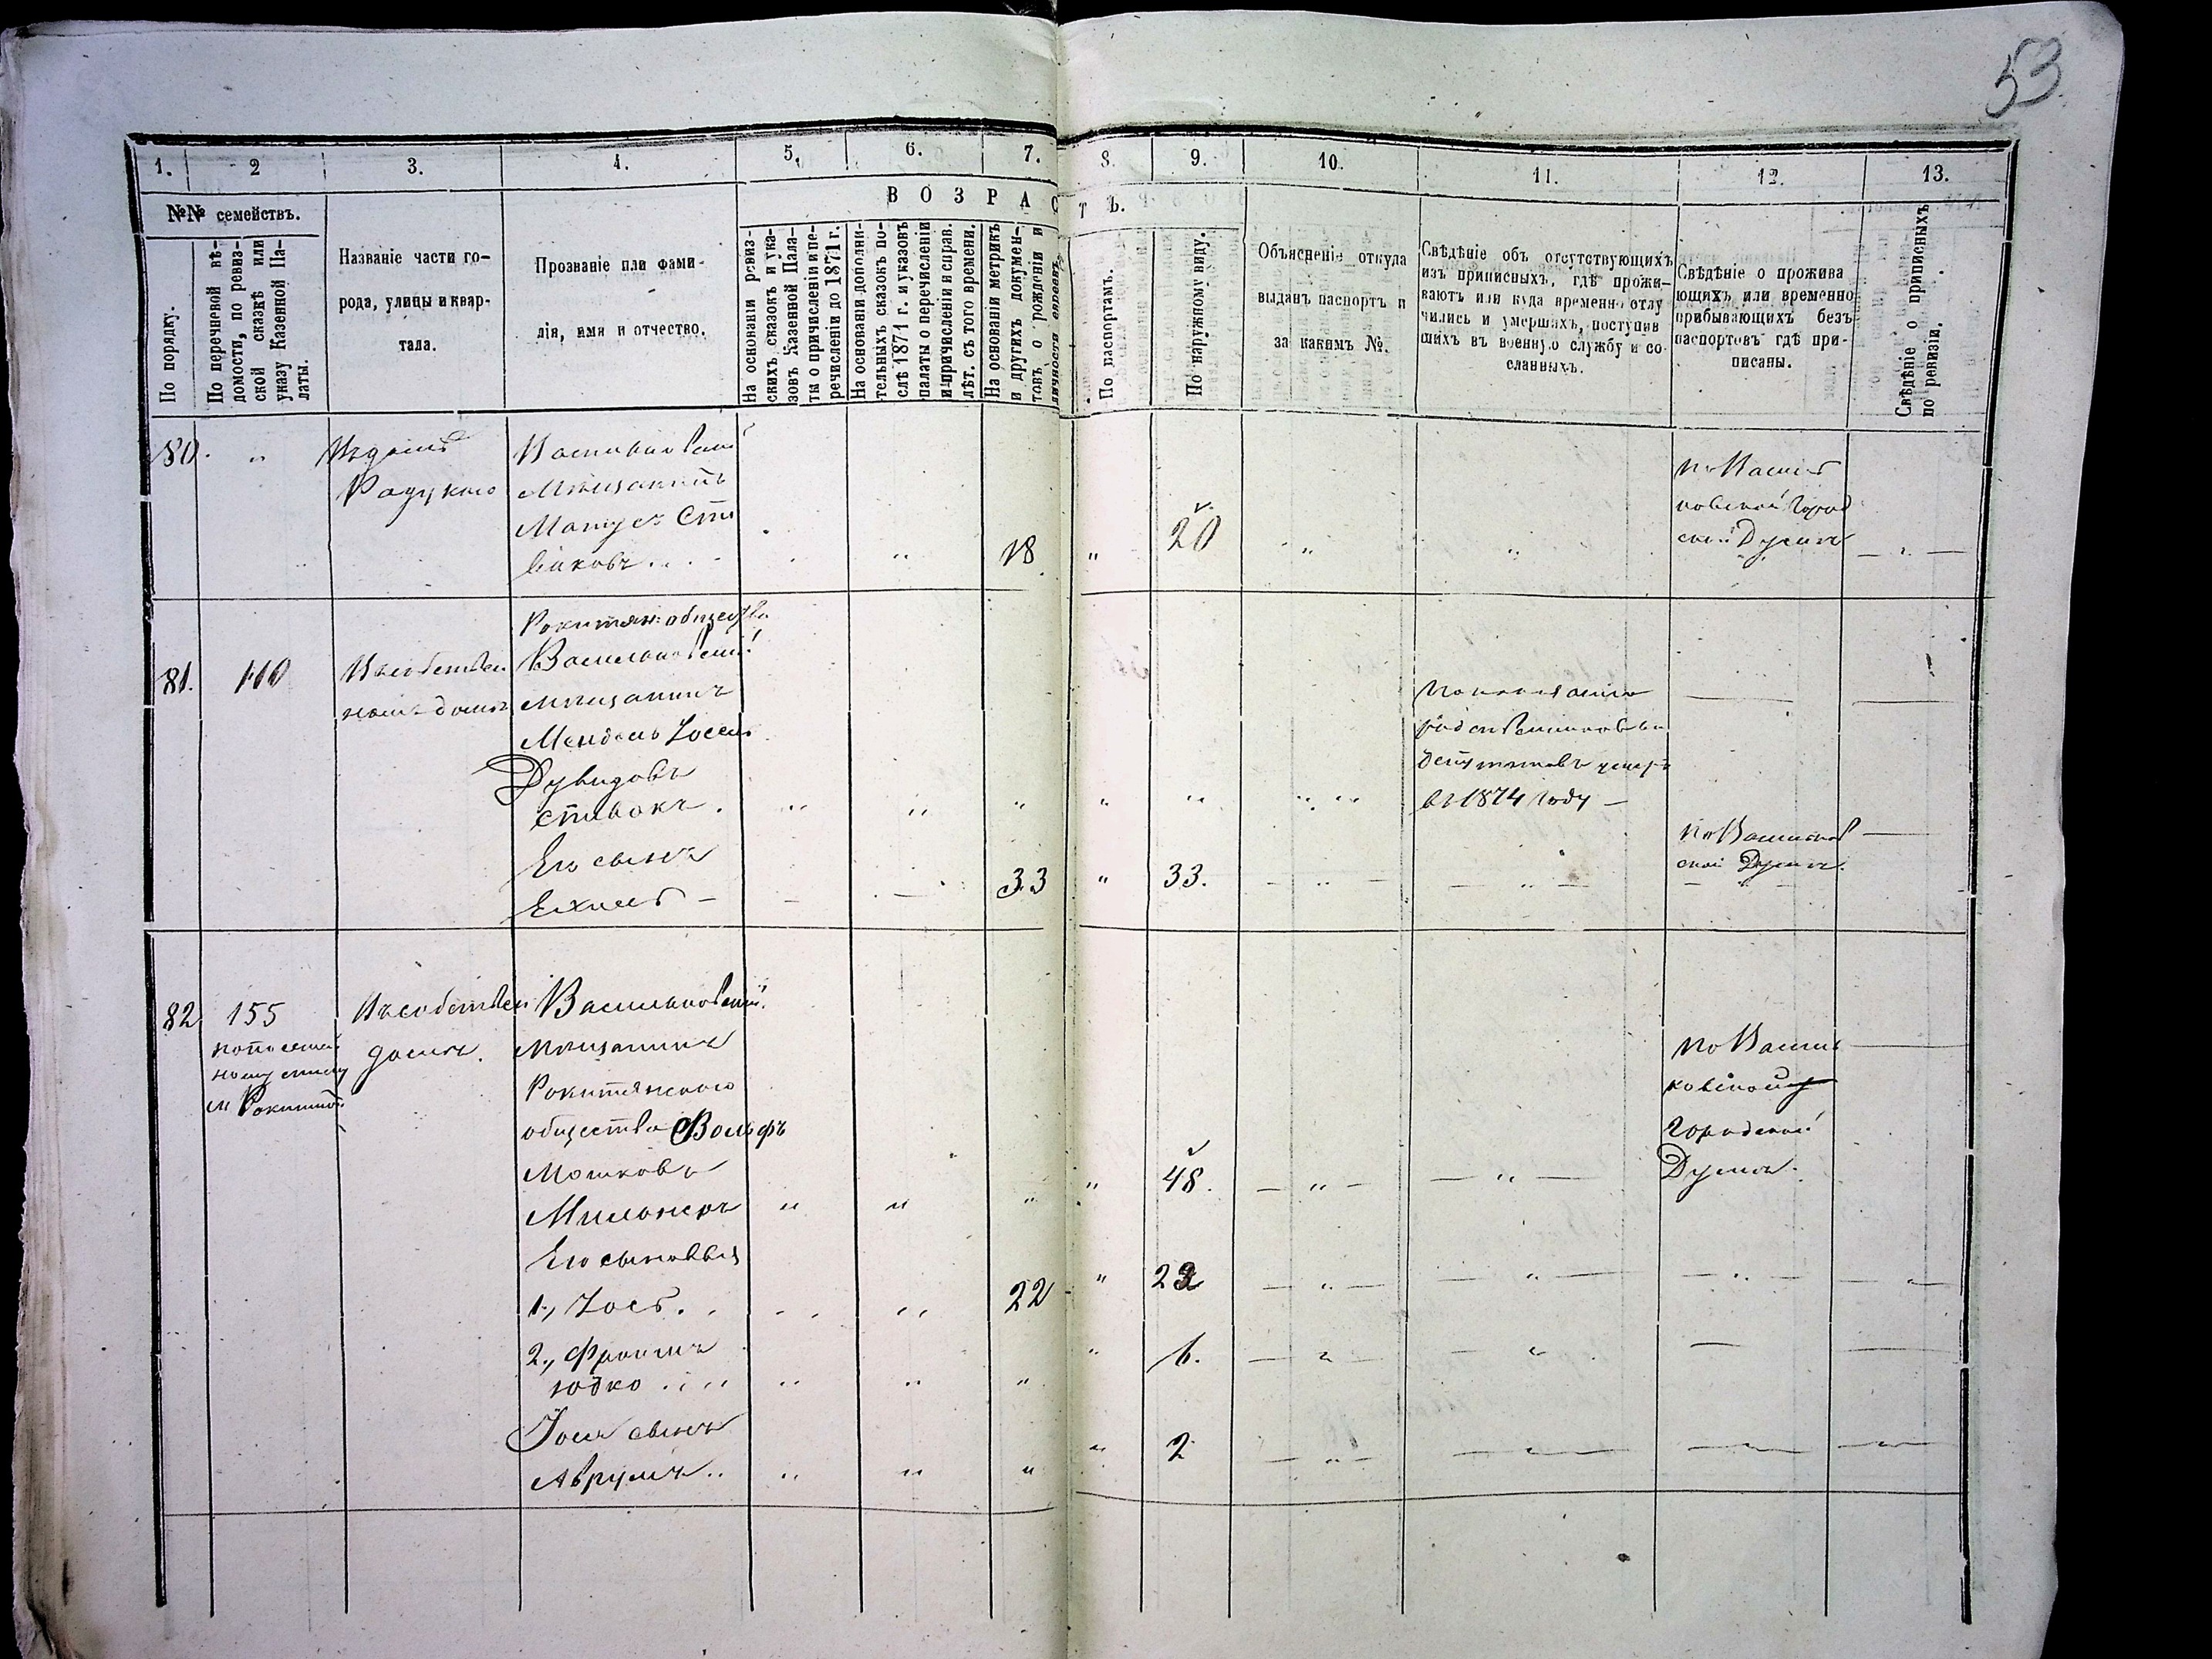 53
1. 2 3. 4. 5. 6. 7. 8. 9. 10. 11. 12. 13.
№№ семействъ.
По порядку.
По перечневой вѣ-
домости, по ревиз-
ской сказкѣ или
указу Казенной Па-
латы.
Названіе части го-
рода, улицы и квар-
тала.
Прозваніе или фами-
лія, имя и отчество.
ВОЗРАСТЪ.
На основаніи ревиз-
скихъ сказокъ и ука-
зовъ Казенной Пала-
ты о причисленіи и пе-
речисленіи до 1871 г.
На основаніи дополни-
тельныхъ сказокъ по-
слѣ 1871 г. и указовъ
палаты о перечисленіи
и причисленіи и справ.
лѣт. съ того времени.
На основаніи метрикъ
и другихъ докумен-
товъ о рожденіи и
личности евреевъ.
По паспортамъ.
По наружному виду.
Объясненіе откуда
выданъ паспортъ и
за какимъ №.
Свѣдѣніе объ отсутствующихъ
изъ приписныхъ, гдѣ прожи-
ваютъ или куда временно отлу
чились и умершихъ, поступив
шихъ въ военную службу и со-
сланныхъ.
Свѣдѣніе о прожива
ющихъ или временно
прибывающихъ безъ
паспортовъ гдѣ при-
писаны.
Свѣдѣніе о приписныхъ
по ревизіи.
80. " Въ домѣ
Васильковскій
Мѣщанинъ
Матус Спи
ваковъ . . .
" 18 " 20 " "
по Василь
ковской Город
ской Думѣ
Рокитян: общества
81. 110 Въ собствен
номъ домѣ
Васильковскій
мѣщанинъ
Мендель Иосель
Дувидовъ
Спивакъ .
" " " " " " "
По показанію
родственниковъ и
депутатовъ умеръ
въ 1874 году —
Его сынъ
Ехиель — 33 " 33. " "
По Васильков
ской Думѣ.
82 155
по посемей
ному списку
м Рокитной
Въ собствен
домѣ.
Васильковскій
Мѣщанинъ
Рокитянскаго
общества Вольфъ
Мошковъ
" " " " 48. " "
По Василь
ковской
городской
Думѣ.
Его сыновья
1., Иось . . " 22 " 22 " " "
2., Фроимъ
Юдко . . . " " " " 6. " "
Иося сынъ
Аврумъ .. " " " " 2 " " " "